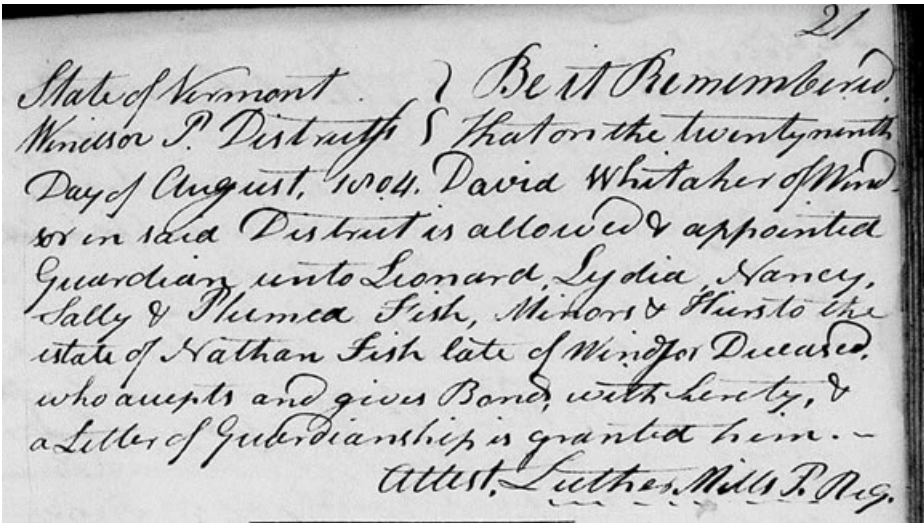 21
State of Vermont } Be it Remembered,
Windsor P. District ss } that on the twenty ninth
Day of August, 1804. David Whitaker of Wind-
sor in said District is allowed & appointed
Guardian unto Leonard, Lydia, Nancy,
Sally & Plumea Fish, Minors & Heirs to the
estate of Nathan Fish late of Windsor Deceased,
who accepts and gives Bond, with surety, &
a Letter of Guardianship is granted him. –
Attest, Luther Mills P. Reg.